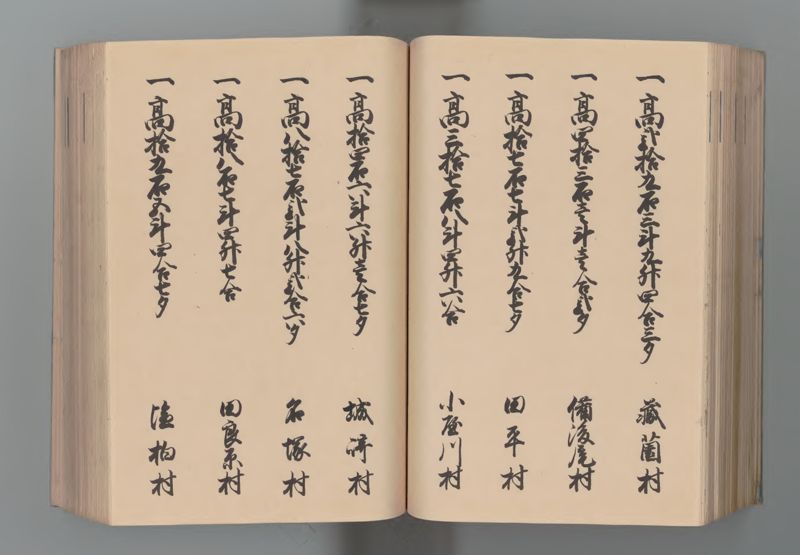 一高弐拾九石三斗九升四合三夕 蔵薗村
一高四拾三石壱斗壱合弐夕 備後尾村
一高拾七石七斗弐升九合七夕 田平村
一高三拾七石八斗四升六合 小屋川村
一高拾四石六斗六升壱合七夕 城村
一高八拾七石弐斗八升弐合六夕 名塚村
一高拾八石七斗四升七合 田良原村
一高拾九石五斗四合七夕 柏村